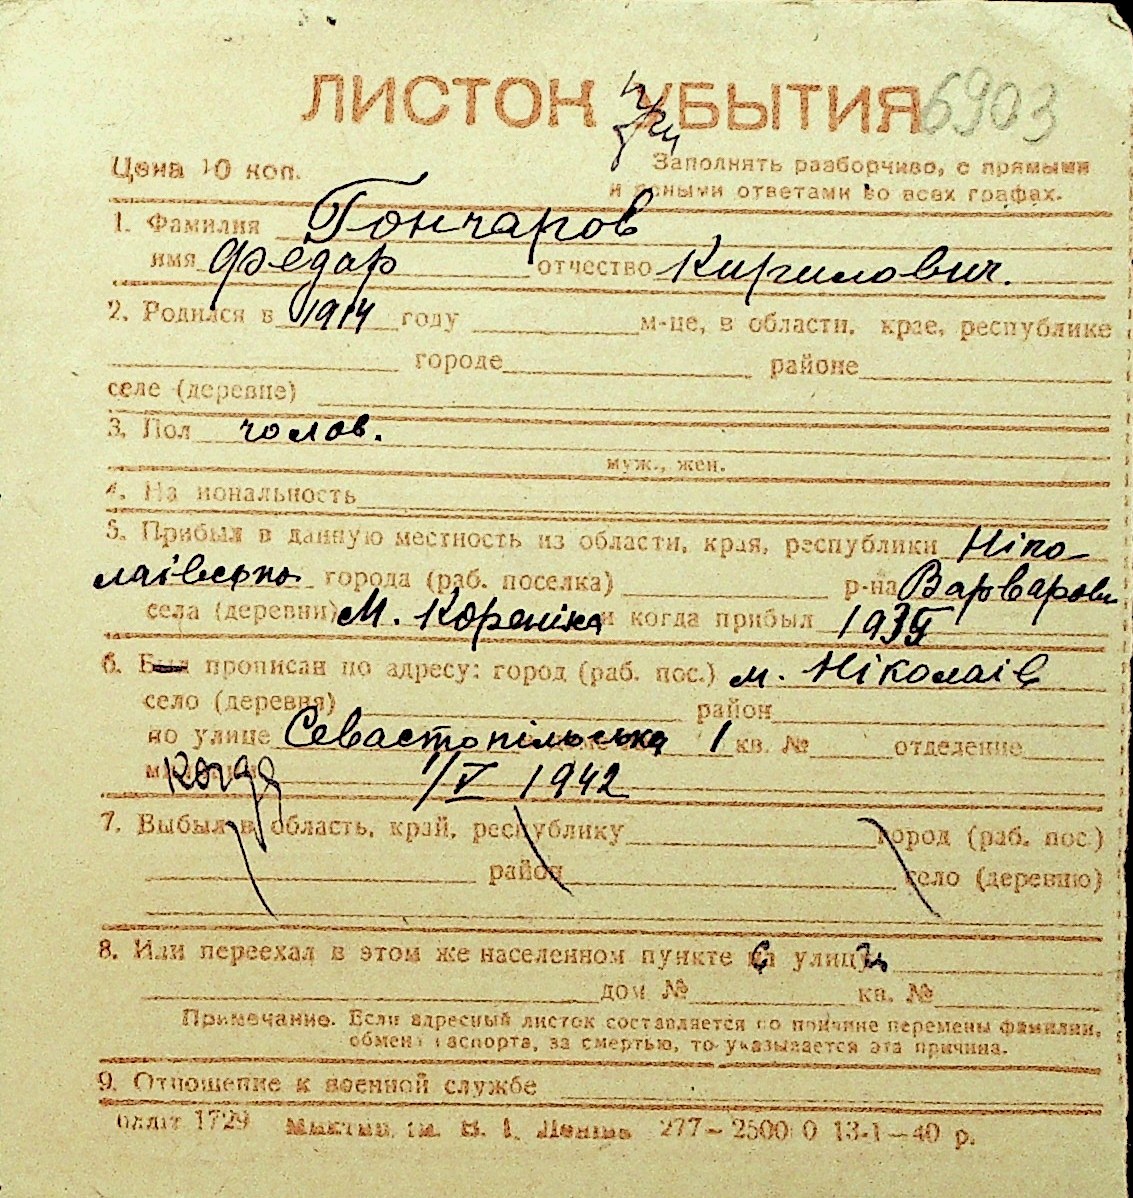 ЛИСТОК УБЫТИЯ 6903
Цена 10 коп.
Заполнять разборчиво, с прямыми
и ясными ответами во всех графах.
1. Фамилия Гончаров
имя Федар отчество Кирилович.
2. Родился в 1914 году м-це, в области, крае, республике
городе районе
селе (деревне)
3. Пол чолов.
муж., жен.
4. Национальность
5. Прибыл в данную местность из области, края, республики Ніко
лаівська города (раб. поселка) р-на Варваровк
села (деревни) М. Кореніха и когда прибыл
6. Был прописан по адресу: город (раб. пос.) м. Ніколаів
село (деревня) район
по улице Севастопільська 1 кв. № отделение
когда 1/V 1942
7. Выбыл в область, край, республику город (раб. пос.)
район село (деревню)
8. Или переехал в этом же населенном пункте улицу
дом № кв. №
Примечание. Если адресный листок составляется по причине перемены фамилии,
обмена паспорта, за смертью, то указывается эта причина.
9. Отношение к военной службе
1729 277—2500 0 13-1—40 р.